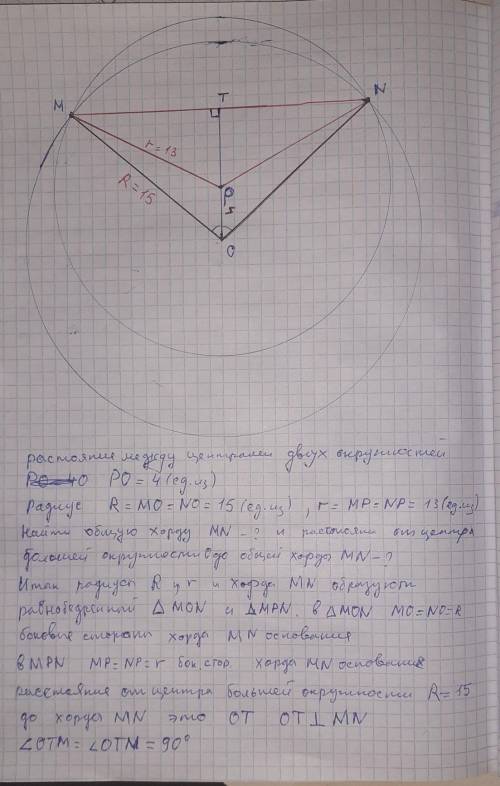 M
T
N
r = 13
R = 15
P
4
O
растояние между центрами двух окружностей
PO = 4 (ед.из)
Радиус R = MO = NO = 15 (ед.из), r = MP = NP = 13 (ед.из)
Найти общую хорду MN - ? и растояни от центра
большей окружности до общей хорды MN - ?
Итак радиусы R и r и хорда MN образуют
равнобедренный △ MON и △ MPN. в △ MON MO = NO = R
боковые стороны хорда MN основания
в MPN MP = NP = r бок.стор. хорда MN основания
расстояние от центра большей окружности R = 15
до хорды MN это OT OT ⊥ MN
∠OTM = ∠OTM = 90°